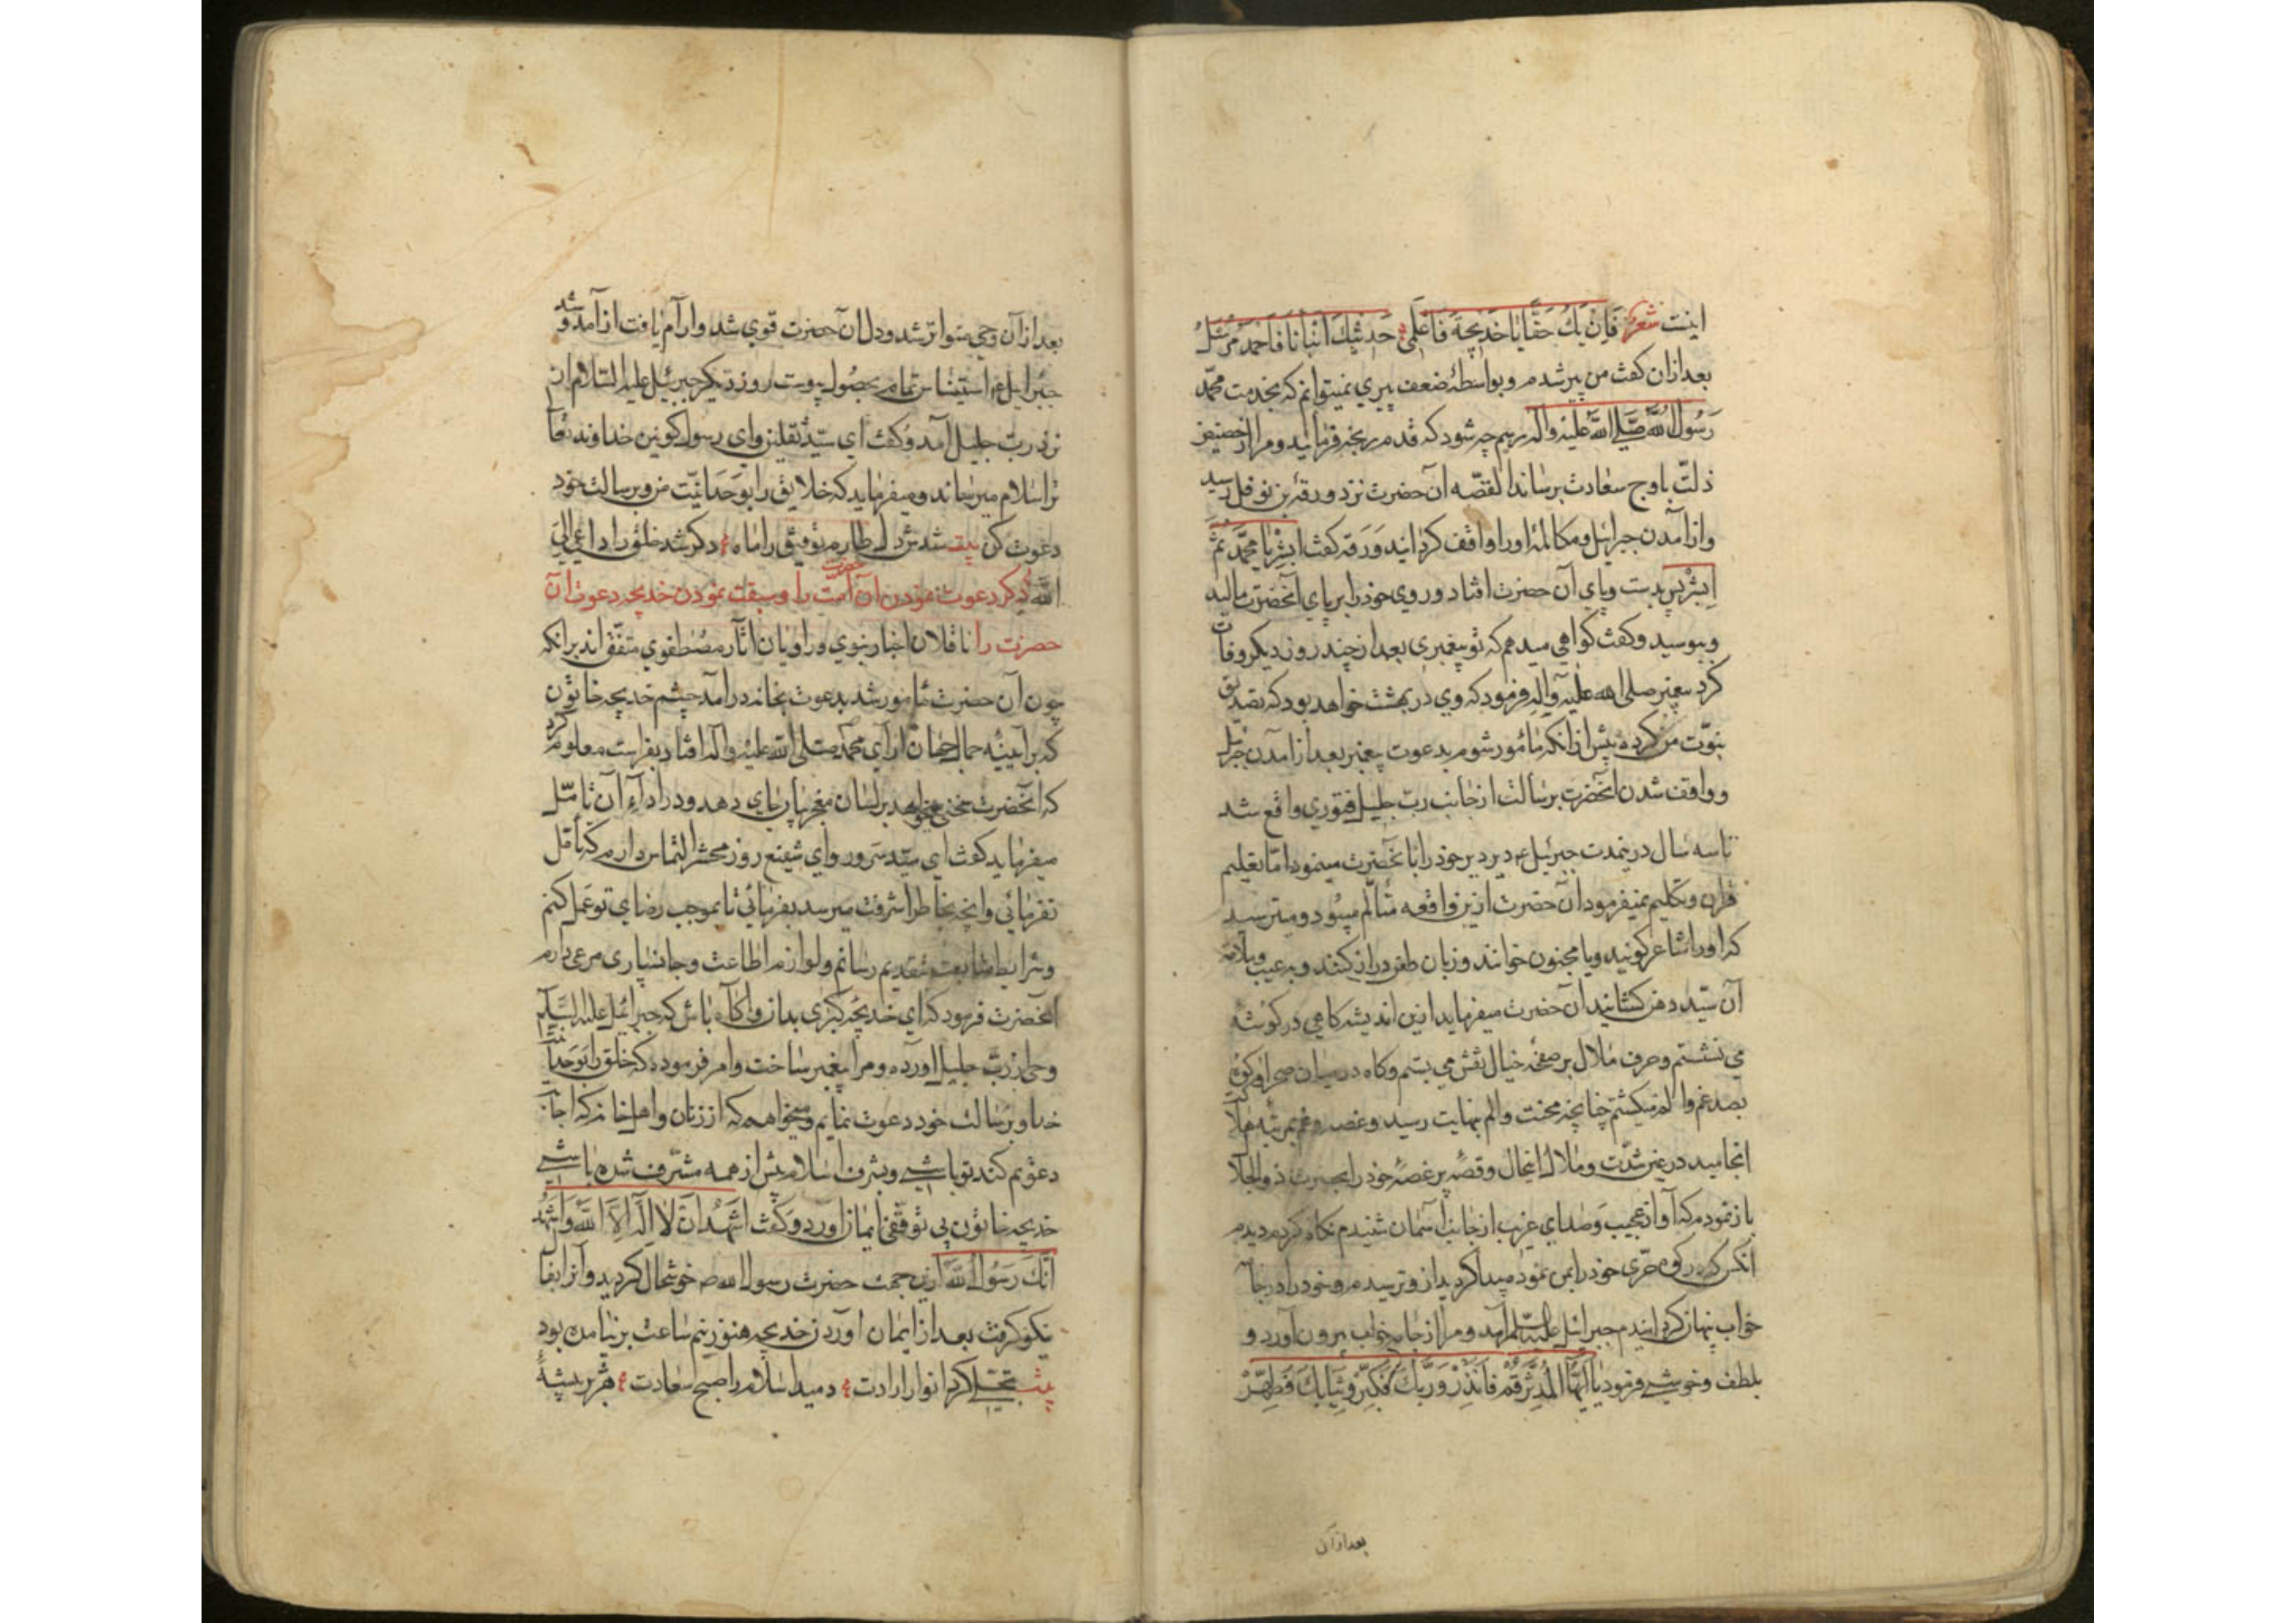 اینست شعر فَاِنْ یَكُ حَقًّا یَا خَدِیجَةُ فَاعْلَمِی حَدِیثُكِ اِیَّانَا فَاَحْمَدُ مُرْسَلُ
بعد ازان کفت من پیر شدم و بواسطهٔ ضعف پیری نمیتوانم که بخدمت محمّد
رَسُولُ اللّه صَلَّی اللّه عَلَیْهِ وَآلِه رسم چه شود که قدم رنجه فرمایند و مرا از حضیض
ذلّت باوج سعادت برساند القصّه آن حضرت نزد ورقة بن نوفل رسید
و از آمدن جبرائیل و مکالمه او را واقف کردانید وَرَقه کفت ابشِرْ یا محمّد ثمّ
اِبشِرْ پس بدست و پای آن حضرت افتاد و روی خود را بر پای آنحضرت مالید
و ببوسید و کفت کواهی میدهم که تو پیغمبری بعد از چند روز دیکر وفات
کرد پیغمبر صلی الله علیه و آله فرمود که وی در بهشت خواهد بود که تصدیق
نبوّت من کرده پیش از انکه مأمور شوم بدعوت پیغمبر بعد از آمدن جبرئیل
و واقف شدن آنحضرت برسالت از جانب ربّ جلیل فتوری واقع شد
تا سه سال درینمدت جبرئیل ع م دیر دیر خود را با نحضرت مینمود امّا تعلیم
قرآن و تکلیم نمیفرمود آن حضرت ازین واقعه متألّم میبود و میترسید
که او را شاعر کویند و یا مجنون خوانند و زبان طعن دراز کنند و به عیب و ملامت
آن سیّد دهن کشایند آن حضرت میفرماید ازین اندیشه کاهی در کوشهٔ
می نشستم و حرف ملال بر صفحهٔ خیال نقش می بستم و کاه در میان صحرا و کوه
بصد غم و الم میکشتم چنانچه محنت و الم بنهایت رسید و غصه و غم بمرتبهٔ هلاک
انجامید در عین شدّت و ملال اینحال و قصّه پر غصهٔ خود را بحضرت ذو الجلال
باز نمودم که آواز عجیب و صدای غریب از جانب آسمان شنیدم نکاه کردم دیدم
انکس که در کوه حرّی خود را بمن نموده پیدا کردید ازو ترسیدم و خود را در جامه
خواب پنهان کردانیدم جبرائیل علیه السّلم آمد و مرا از جامه خواب بیرون آورد و
بلطف و خوشی فرمود یَا اَیُّهَا الْمُدَّثِّرُ قُمْ فَاَنْذِرْ وَرَبَّكَ فَكَبِّرْ وَثِیَابَكَ فَطَهِّرْ
بعد ازان
بعد ازآن وحی متواتر شد و دل آن حضرت قوی شد و آرام یافت از آمد و شد
جبرائیل ع م استیناس تمام بحصول پیوست روز دیکر جبرئیل علیه السّلام از
نزد ربّ جلیل آمد و کفت ای سیّد ثقلین و ای رسول کونین خداوند تعالی
ترا سلام میرساند و میفرماید که خلایق را بوَحدانیّت من و برسالت خود
دعوت کن بیت شدش دل طارم توفیق را ماه دکر شد خلق را داعی الی
اللّه ذکر دعوت نمودن آن حضرت امت را و سبقت نمودن خدیجه دعوت آن
حضرت را ناقلان اخبار نبوی و راویان آثار مصطفوی متفّق اند بر انکه
چون آن حضرت مأمور شد بدعوت بخانه درآمد چشم خدیجه خاتون
که بر آیینهٔ جمال جهان آرای محمّد صلی اللّه علیه و آله افتاد بفراست معلوم کرد
که آنحضرت سخنی میخواهد بر لسان معجز بیان جای دهد و در اداء آن تأمّل
میفرماید کفت ای سیّد سَرور و ای شفیع روز محشر التماس دارم که تأمّل
نفرمائی و آنچه بخاطر اشرفت میرسد بفرمائی تا بموجب رضای تو عمل کنم
و شرایط متابعت بتقدیم رسانم و لوازم اطاعت و جانسپاری مرعی دارم
آنحضرت فرمود که ای خدیجه کبری بدان و آکاه باش که جبرائیل علیه السّلم
وحی از ربّ جلیل آورده و مرا پیغمبر ساخت و امر فرموده که خلق را بوَحدانیت
خدا و برسالت خود دعوت نمایم و میخواهم که از زنان و اهل خانه که اجابت
دعوتم کند تو باشی و بشرف اسلام پیش از همه مشرّف شده باشی
خدیجه خاتون بی توقفی ایمان آورد و کفت اَشْهَدُ اَنْ لَا اِلٰهَ اِلَّا اللّه وَ اَشْهَدُ
اَنَّكَ رَسُولُ اللّه ازین جهت حضرت رسول الله ص خوشحال کردید و آنرا بفال
نیکو کرفت بعد از ایمان آوردن خدیجه هنوز نیم ساعت برنیامده بود
بیت تجلی کرد انوار ارادت دمید اسلام را صبح سعادت هژبر بیشهٔ